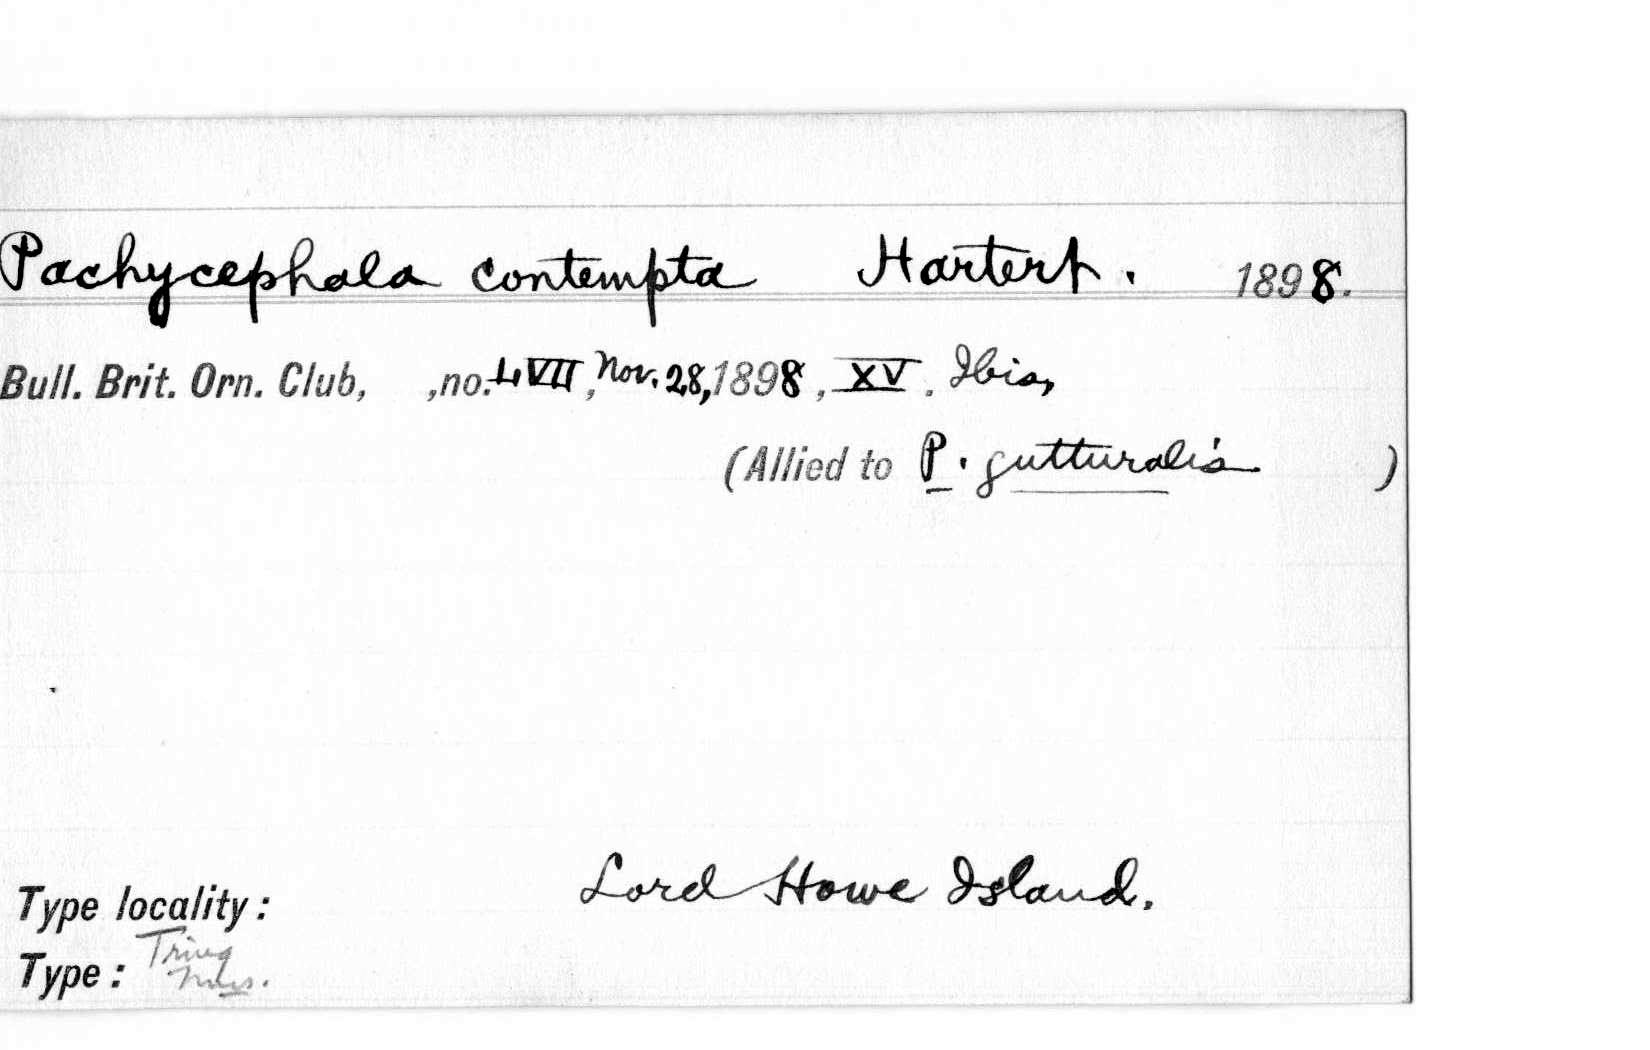 Pachycephala contempta Hartert. 1898.
Bull. Brit. Orn. Club, ,no. LVII, Nov. 28, 1898, XV. Ibis,
(Allied to P. gutturalis )
Type locality: Lord Howe Island.
Type: Tring
Mus.